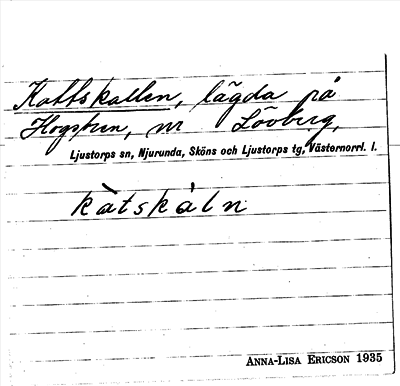 Kattskallen, lägda på
Hogsten, nr Lövberg,
Ljustorps sn, Njurunda, Sköns och Ljustorps tg, Västernorrl. l.
kàtskàln
ANNA-LISA ERICSON 1935